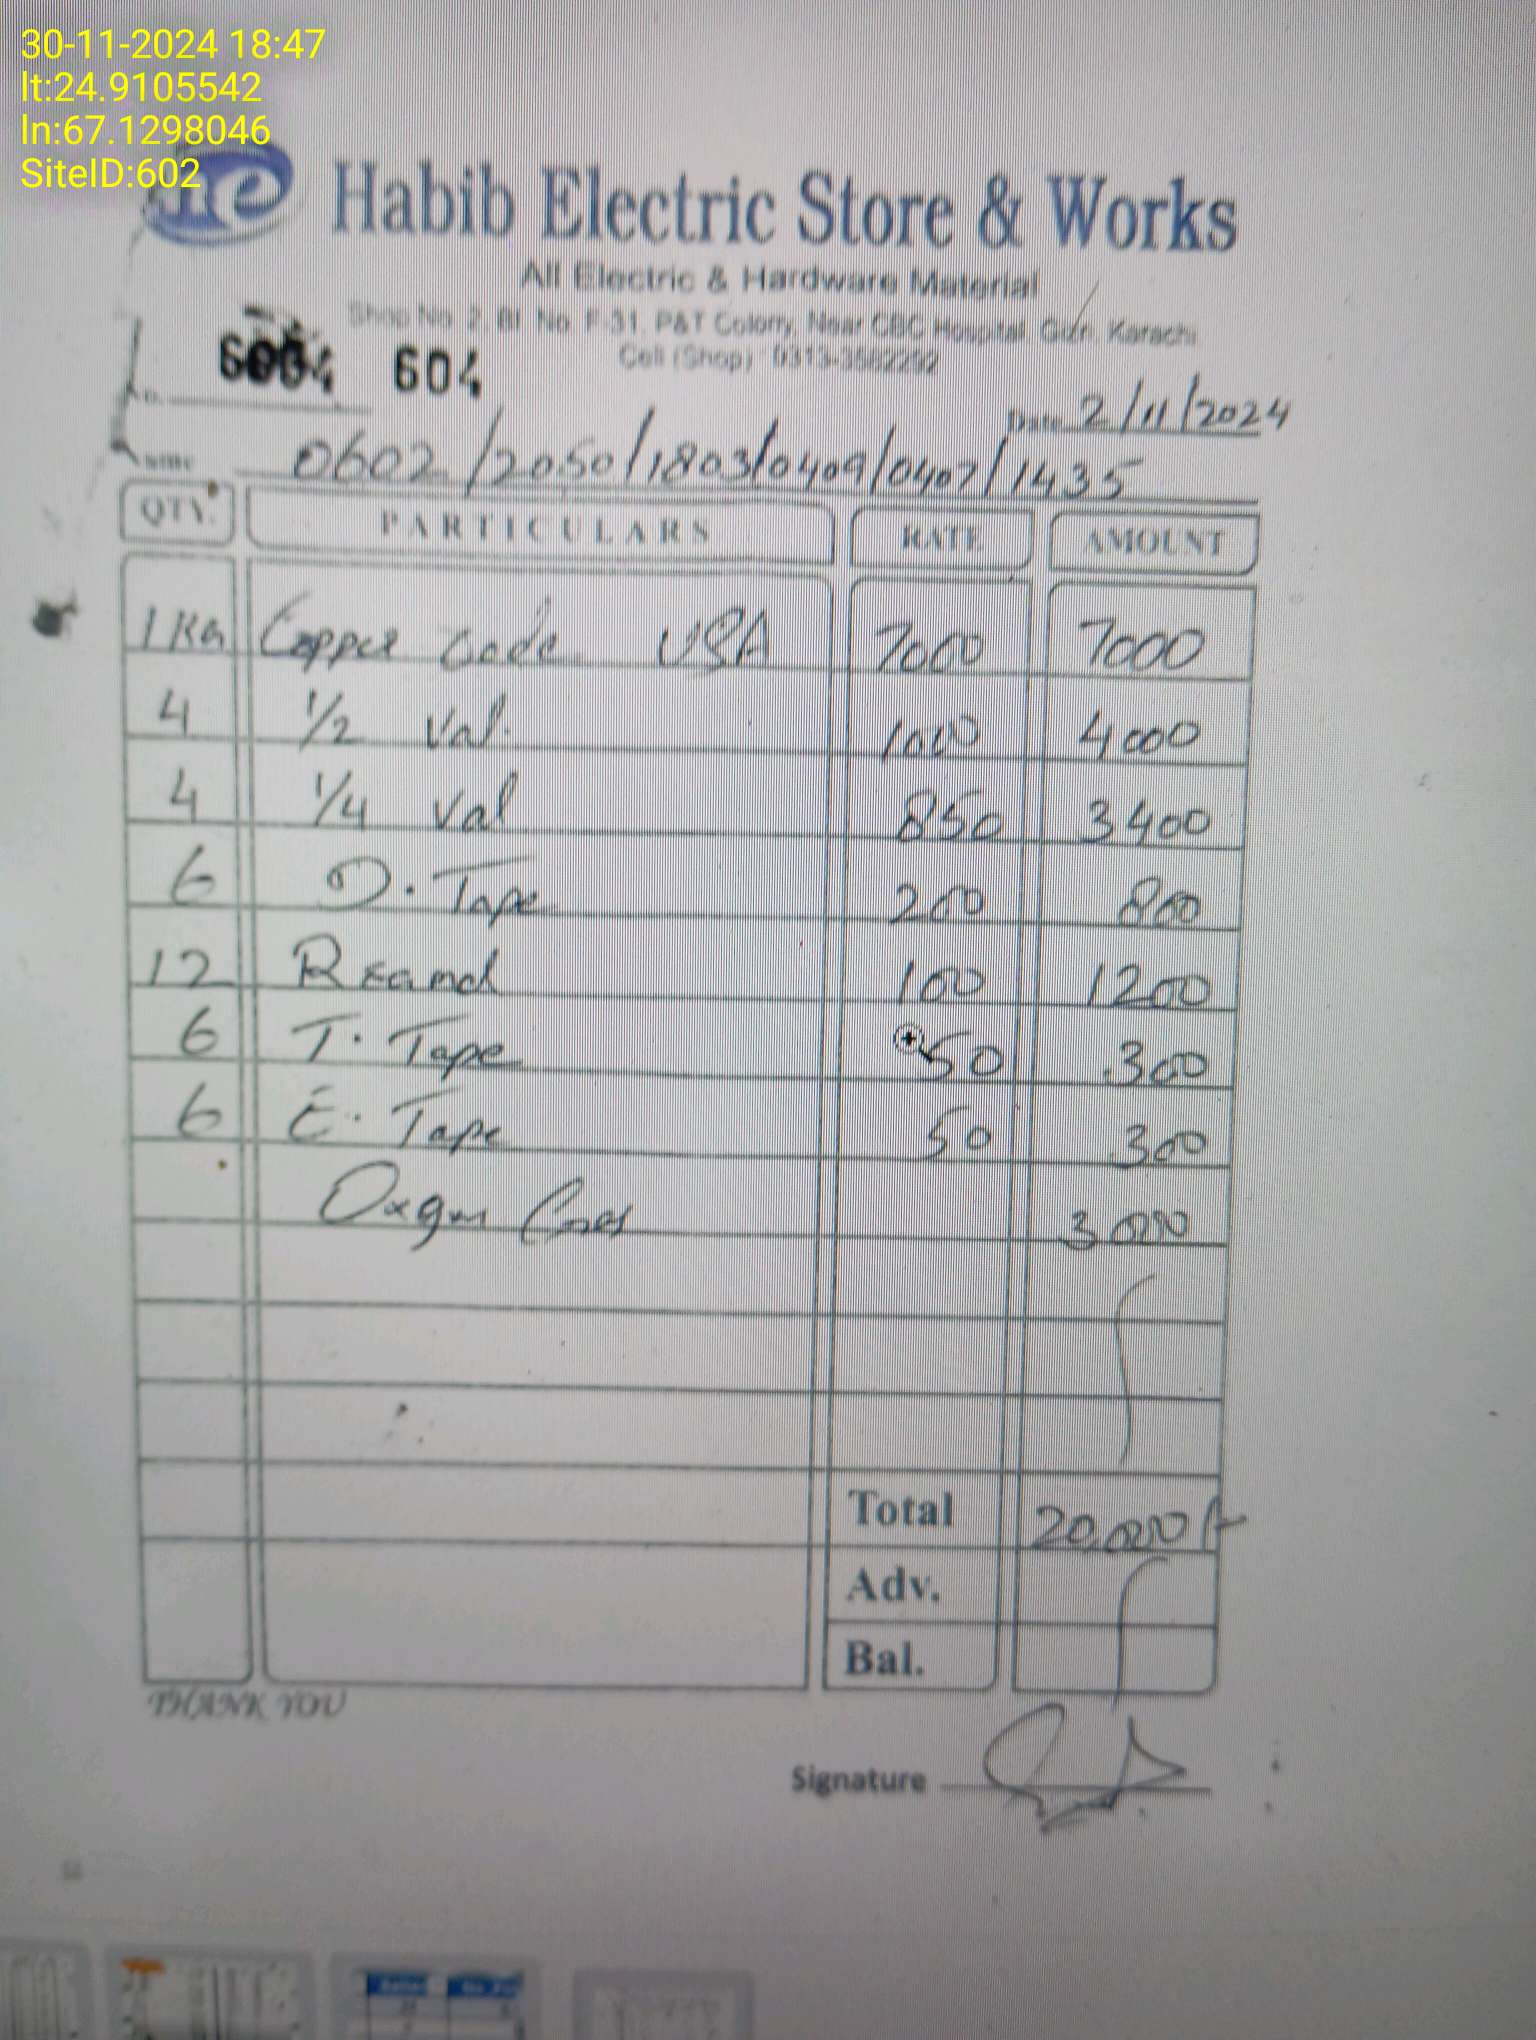 30-11-2024 18:47
lt:24.9105542
ln:67.1298046
SiteID:602
Habib Electric Store & Works
All Electric & Hardware Material
Shop No. 2, Bl. No. F-31, P&T Colony, Near CBC Hospital, Gizri, Karachi
Cell (Shop) : 0313-3582292
604
Date 2/11/2024
Name 0602/2050/1803/0409/0407/1435
QTY. PARTICULARS RATE AMOUNT
1 KG Copper USA 7000 7000
4 1/2 Val. 1000 4000
4 1/4 Val 850 3400
6 D. Tape 200 800
12 100 1200
6 T. Tape 50 300
6 E. Tape 50 300
3000
Total 20,000/-
Adv.
Bal.
THANK YOU
Signature